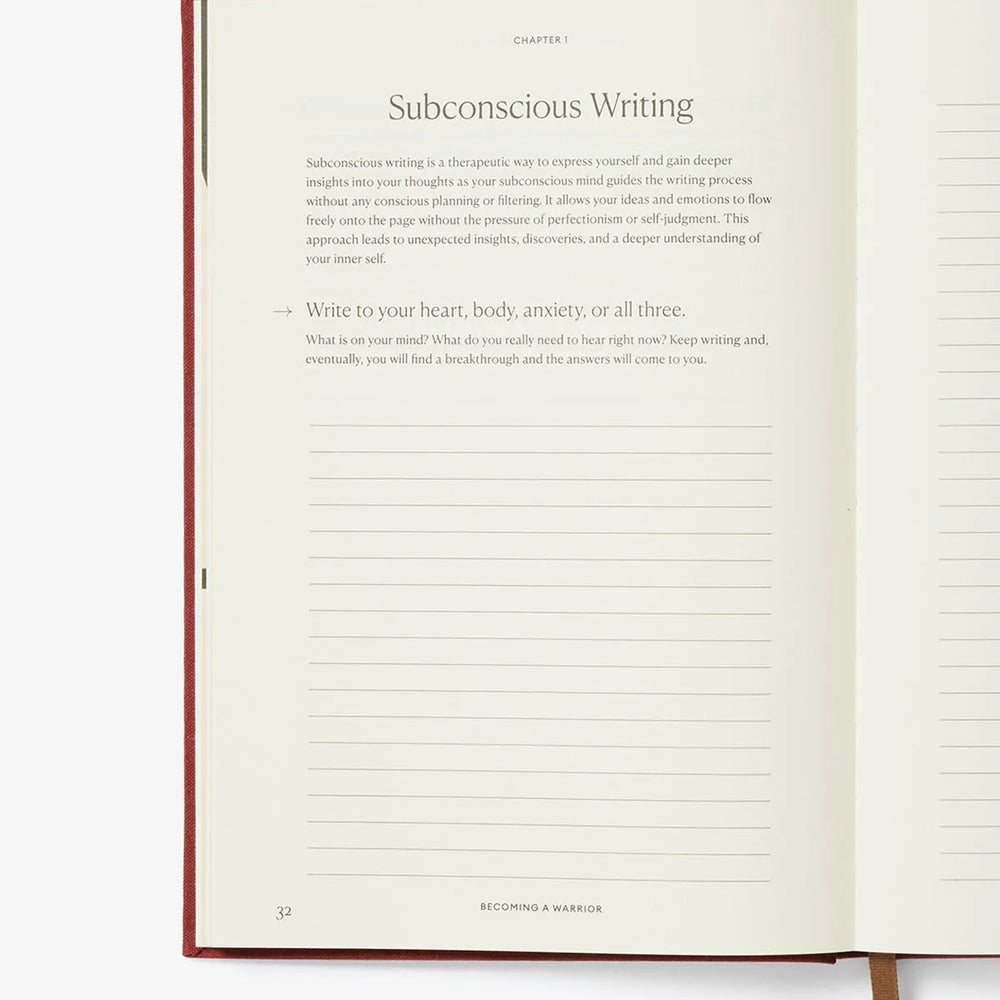 CHAPTER 1
Subconscious Writing
Subconscious writing is a therapeutic way to express yourself and gain deeper
insights into your thoughts as your subconscious mind guides the writing process
without any conscious planning or filtering. It allows your ideas and emotions to flow
freely onto the page without the pressure of perfectionism or self-judgment. This
approach leads to unexpected insights, discoveries, and a deeper understanding of
your inner self.
→ Write to your heart, body, anxiety, or all three.
What is on your mind? What do you really need to hear right now? Keep writing and,
eventually, you will find a breakthrough and the answers will come to you.
32
BECOMING A WARRIOR